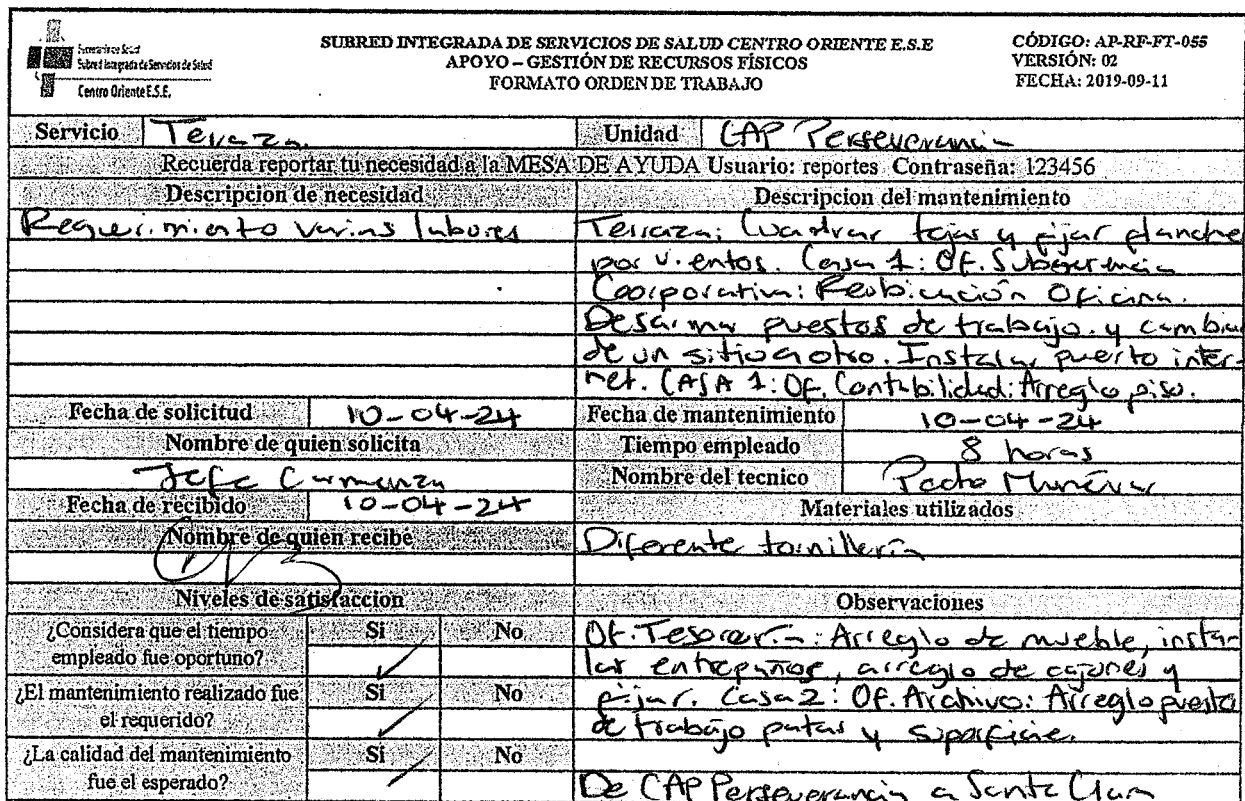 Secretaría de Salud
Subred Integrada de Servicios de Salud
Centro Oriente E.S.E.
SUBRED INTEGRADA DE SERVICIOS DE SALUD CENTRO ORIENTE E.S.E
APOYO – GESTIÓN DE RECURSOS FÍSICOS
FORMATO ORDEN DE TRABAJO
CÓDIGO: AP-RF-FT-055
VERSIÓN: 02
FECHA: 2019-09-11
Servicio Terraza. Unidad CAP Perseverancia
Recuerda reportar tu necesidad a la MESA DE AYUDA Usuario: reportes Contraseña: 123456
Descripcion de necesidad
Requerimiento varias labores
Descripcion del mantenimiento
Terraza: Cuadrar tejas y fijar planche
por vientos. Casa 1: Of. Subgerencia
Coorporativa: Reubicación Oficina.
Desarmar puestos de trabajo. y cambiar
de un sitio a otro. Instalar puerto inter-
net. CASA 1: Of. Contabilidad: Arreglo piso.
Fecha de solicitud 10-04-24
Fecha de mantenimiento 10-04-24
Nombre de quien solicita
Jefe Carmenza
Tiempo empleado 8 horas
Nombre del tecnico Munévar
Fecha de recibido 10-04-24
Nombre de quien recibe
Materiales utilizados
Diferente tornillería
Niveles de satisfaccion
¿Considera que el tiempo
empleado fue oportuno? Si No
¿El mantenimiento realizado fue
el requerido? Si No
¿La calidad del mantenimiento
fue el esperado? Si No
Observaciones
Of. Tesorería: Arreglo de mueble, insta-
lar entrepaños, arreglo de cajones y
fijar. Casa 2: Of. Archivo: Arreglo puesto
de trabajo patas y superficie.
De CAP Perseverancia a Santa Clara